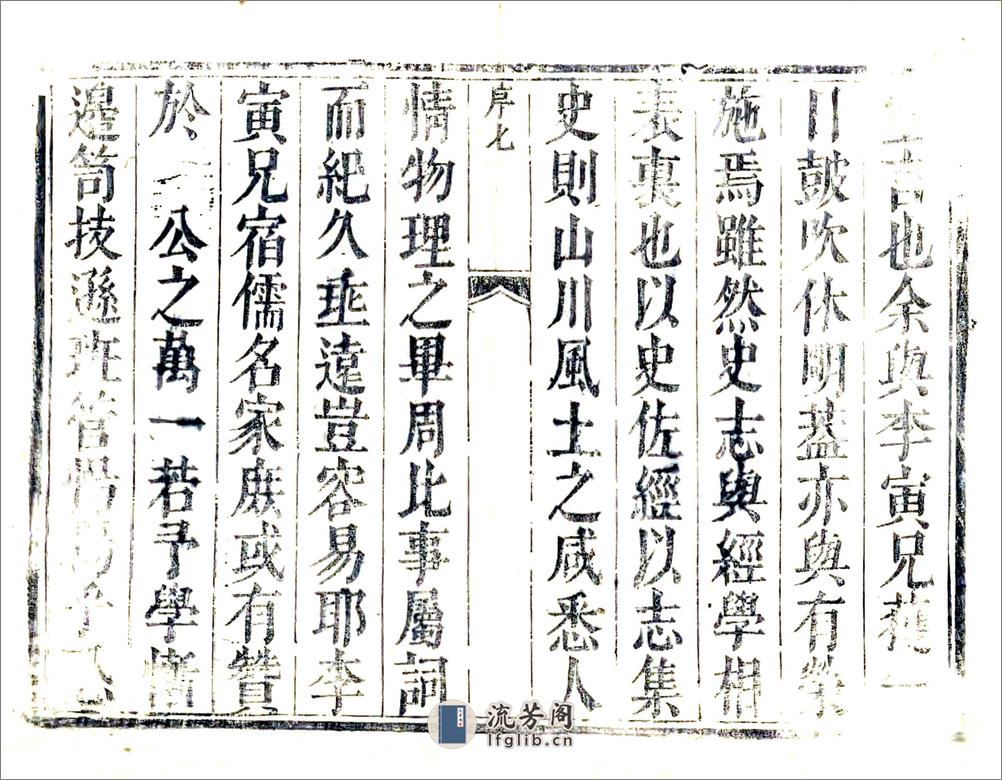 言也余與李寅兄
日鼓吹休明蓋亦與有榮
施焉雖然史志與經學相
表裏也以史佐經以志集
史則山川風土之咸悉人
序七
情物理之畢周比事屬詞
而紀久垂遠豈容易耶李
寅兄宿儒名家庶或有贊
於一公之萬一若予學慚
邊笥技遜班管
流芳阁
lfglib.cn